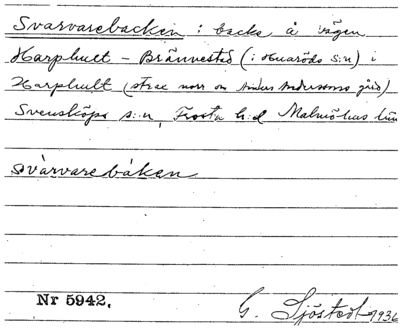 Svarvarebacken : backe å vägen
Harphult – Brännestad (i Huaröds s:n) i
Harphult (strax norr om Anders Anderssons gård)
Svensköps s:n, Frosta h:d Malmöhus län
svàrvarebáken
Nr 5942.
G. Sjöstedt 1936